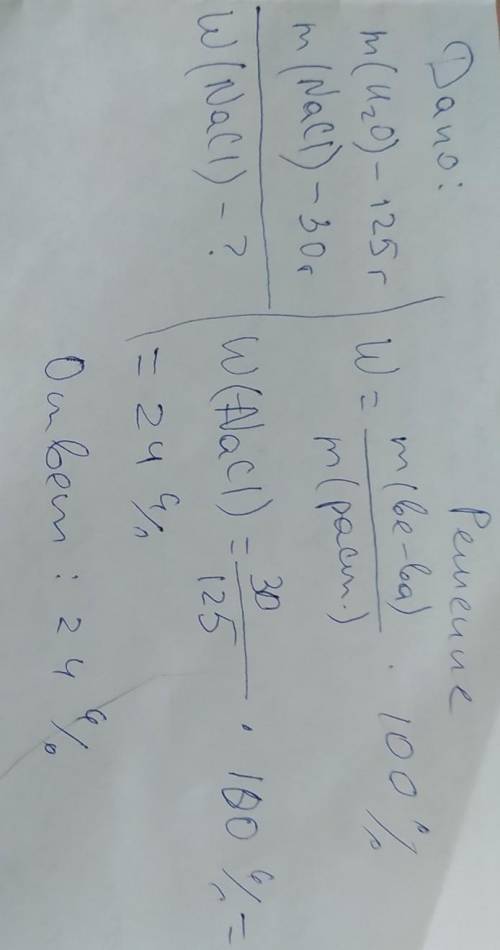 Дано:
m(H₂O) – 125 г
m(NaCl) – 30 г
W(NaCl) – ?
Решение
W = m(ве-ва) / m(раст.) · 100 %
W(NaCl) = 30 / 125 · 100 % =
= 24 %
Ответ: 24 %